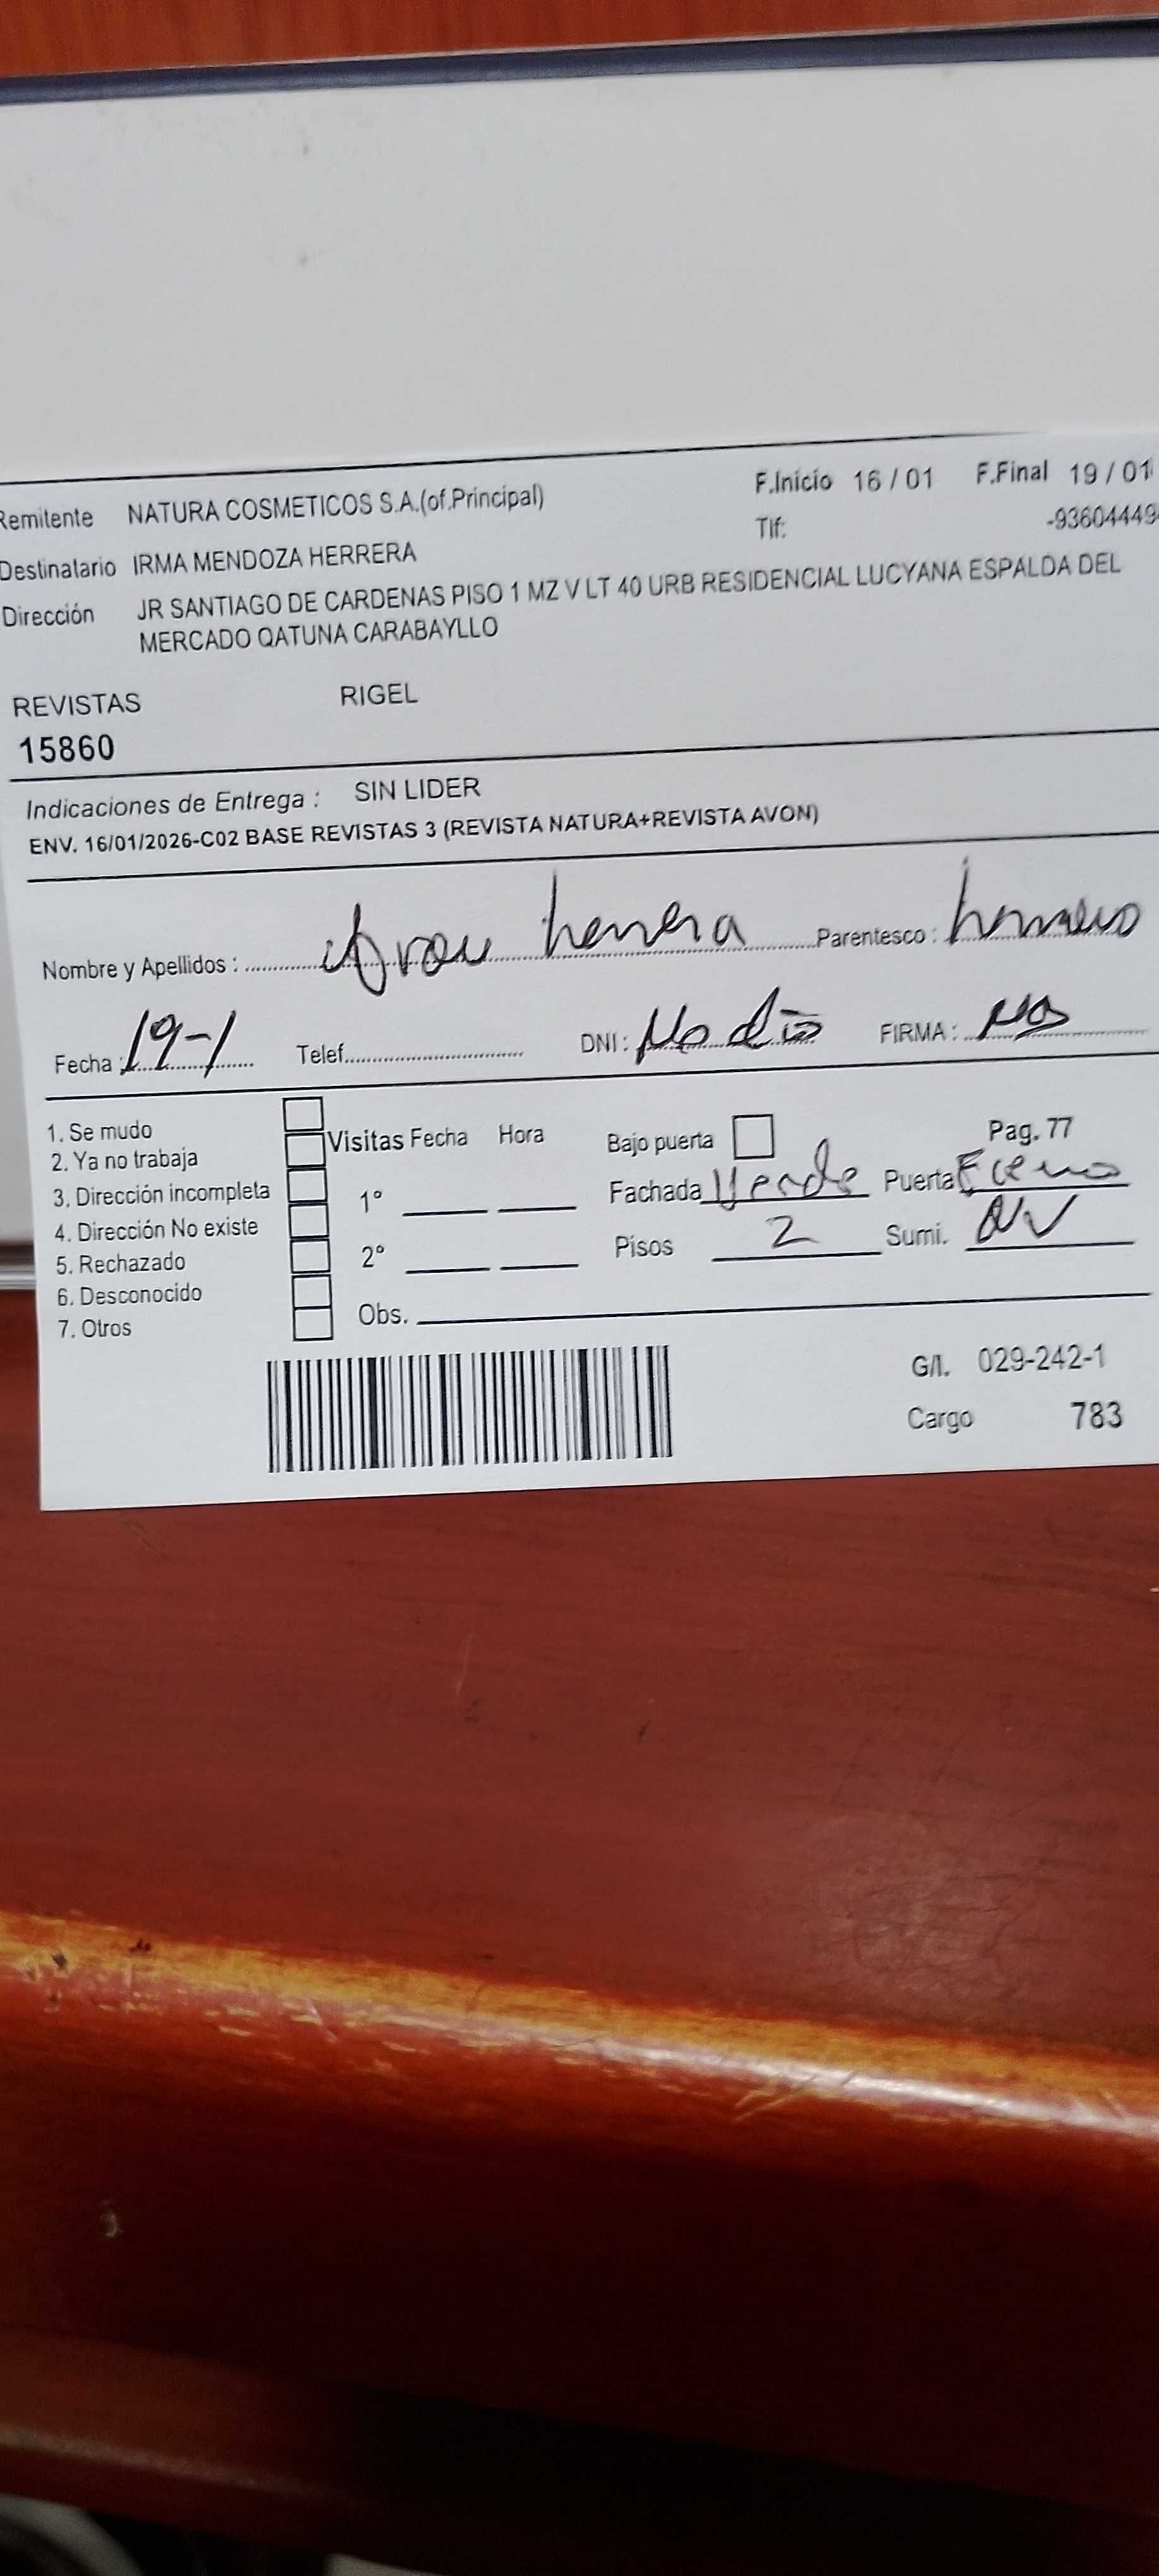 Remitente NATURA COSMETICOS S.A.(of.Principal) F.Inicio 16 / 01 F.Final 19 / 01
Tlf: -93604449
Destinatario IRMA MENDOZA HERRERA
Dirección JR SANTIAGO DE CARDENAS PISO 1 MZ V LT 40 URB RESIDENCIAL LUCYANA ESPALDA DEL
MERCADO QATUNA CARABAYLLO
REVISTAS RIGEL
15860
Indicaciones de Entrega : SIN LIDER
ENV. 16/01/2026-C02 BASE REVISTAS 3 (REVISTA NATURA+REVISTA AVON)
Nombre y Apellidos : herrera Parentesco :
Fecha : 19-1 Telef. DNI : No dio FIRMA :
1. Se mudo
2. Ya no trabaja
3. Dirección incompleta
4. Dirección No existe
5. Rechazado
6. Desconocido
7. Otros
Visitas Fecha Hora
1°
2°
Obs.
Bajo puerta Pag. 77
Fachada Verde Puerta
Pisos 2 Sumi. NV
G/I. 029-242-1
Cargo 783